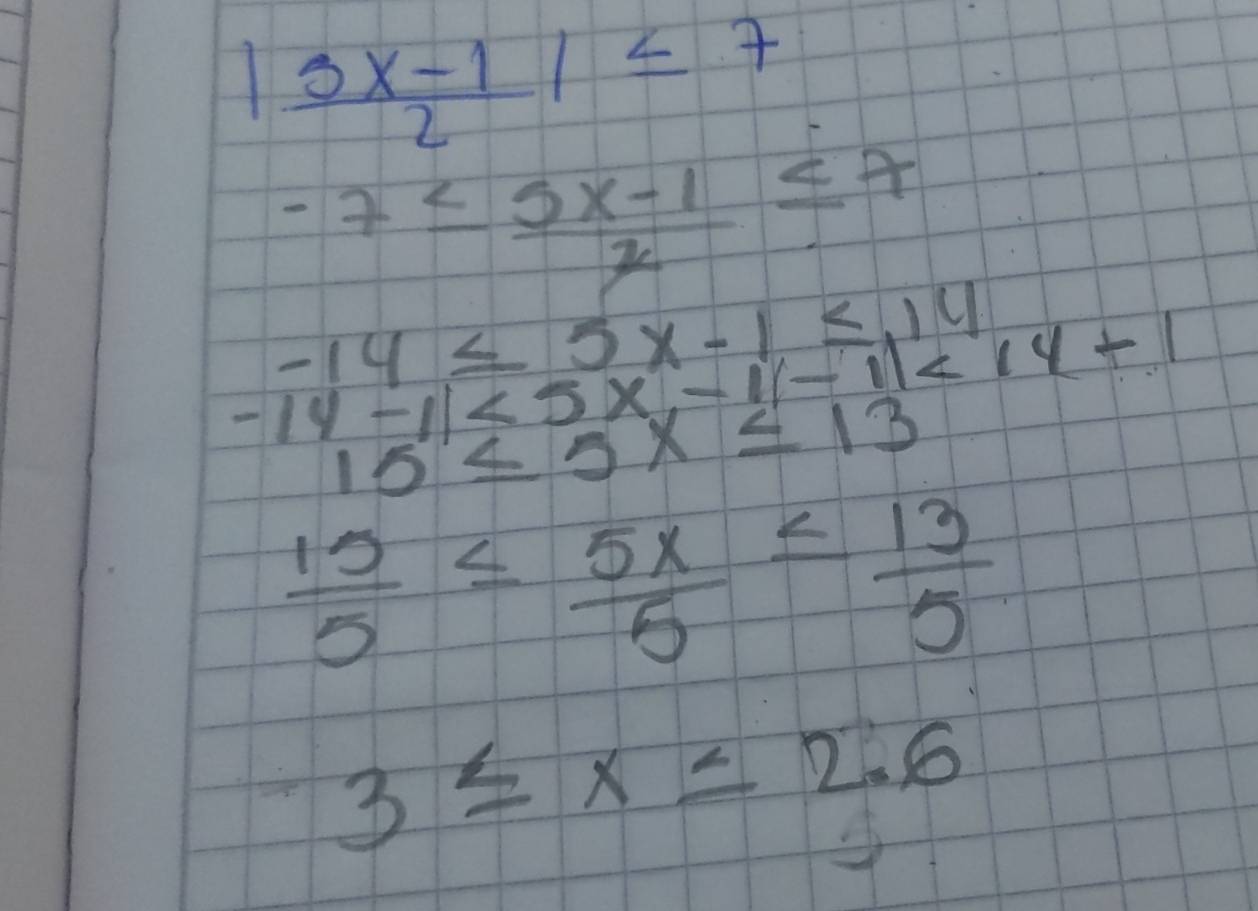 |5x-1/2| ≤ 7
-7 ≤ 5x-1/2 ≤ 7
-14 ≤ 5x-1 ≤ 14
-14-1| < 5x-1|-1| < 14+1
15 ≤ 5x ≤ 13
15/5 ≤ 5x/5 ≤ 13/5
3 ≤ x ≤ 2.6